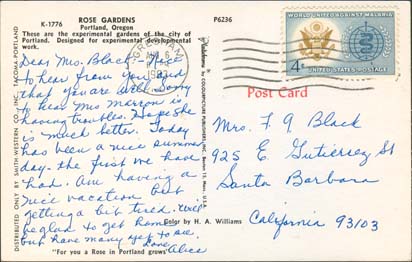 K-1776 ROSE GARDENS P6236
Portland, Oregon
These are the experimental gardens of the city of
Portland. Designed for experimental developmental
work.
Dear Mrs. Black - Nice
to hear from you and
that you are well. Sorry
to hear Mrs
is having troubles. Hope she
is much better. Today
has been a nice summer
day - the first we have
had. Am having a
nice vacation but
getting a bit tired. Will
be glad to get home
but have many yet to see.
Love
Alice
"For you a Rose in Portland grows"
Color by H. A. Williams
DISTRIBUTED ONLY BY SMITH-WESTERN CO., INC., TACOMA-PORTLAND
COLOURPICTURE PUBLISHERS, INC., Boston 15, Mass., U.S.A.
GRESHAM
WORLD UNITED AGAINST MALARIA
4¢
UNITED STATES POSTAGE
Post Card
Mrs. F. G. Black
925 E Gutierrez St
Santa Barbara
California 93103